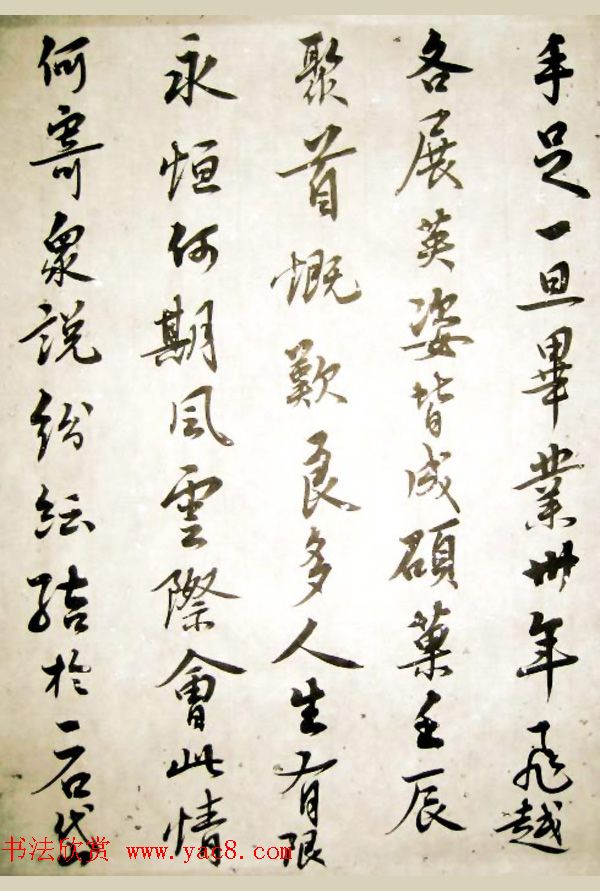 手足一旦畢業卅年飛越
各展英姿皆成碩菓壬辰
聚首慨歎良多人生有限
永恒何期風雲際會此情
何寄衆說紛紜結於一石以
书法欣赏 www.yac8.com